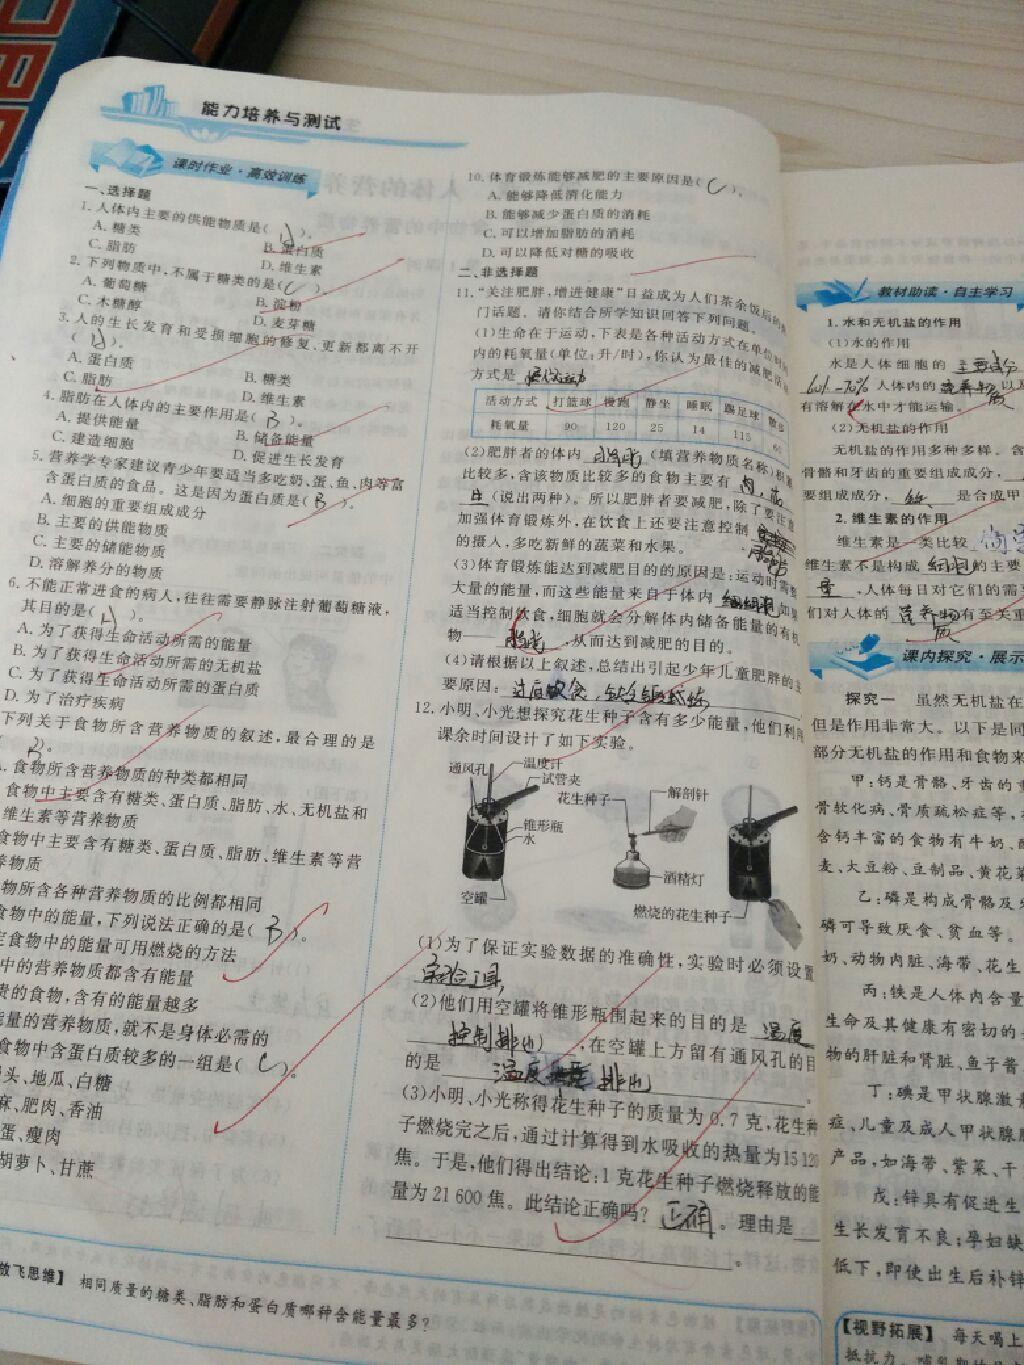 能力培养与测试
课时作业·高效训练
一、选择题
1.人体内主要的供能物质是( A )。
A.糖类
B.蛋白质
C.脂肪
D.维生素
2.下列物质中,不属于糖类的是( C )。
A.葡萄糖
B.淀粉
C.木糖醇
D.麦芽糖
3.人的生长发育和受损细胞的修复、更新都离不开
( A )。
A.蛋白质
B.糖类
C.脂肪
D.维生素
4.脂肪在人体内的主要作用是( B )。
A.提供能量
B.储备能量
C.建造细胞
D.促进生长发育
5.营养学专家建议青少年要适当多吃奶、蛋、鱼、肉等富
含蛋白质的食品。这是因为蛋白质是( B )。
A.细胞的重要组成成分
B.主要的供能物质
C.主要的储能物质
D.溶解养分的物质
6.不能正常进食的病人,往往需要静脉注射葡萄糖液,
其目的是( A )。
A.为了获得生命活动所需的能量
B.为了获得生命活动所需的无机盐
C.为了获得生命活动所需的蛋白质
D.为了治疗疾病
下列关于食物所含营养物质的叙述,最合理的是
( B )。
食物所含营养物质的种类都相同
食物中主要含有糖类、蛋白质、脂肪、水、无机盐和
维生素等营养物质
食物中主要含有糖类、蛋白质、脂肪、维生素等营
养物质
物所含各种营养物质的比例都相同
食物中的能量,下列说法正确的是( B )。
食物中的能量可用燃烧的方法
中的营养物质都含有能量
贵的食物,含有的能量越多
能量的营养物质,就不是身体必需的
食物中含蛋白质较多的一组是( C )。
头、地瓜、白糖
麻、肥肉、香油
蛋、瘦肉
胡萝卜、甘蔗
放飞思维】 相同质量的糖类、脂肪和蛋白质哪种含能量最多?
10.体育锻炼能够减肥的主要原因是( C )。
A.能够降低消化能力
B.能够减少蛋白质的消耗
C.可以增加脂肪的消耗
D.可以降低对糖的吸收
二、非选择题
11.“关注肥胖,增进健康”日益成为人们茶余饭后的热
门话题。请你结合所学知识回答下列问题。
(1)生命在于运动,下表是各种活动方式在单位时间
内的耗氧量(单位:升/时),你认为最佳的减肥活动
方式是
活动方式 打篮球 慢跑 静坐 睡眠 踢足球 散步
耗氧量 90 120 25 14 115 60
(2)肥胖者的体内 (填营养物质名称)积累
比较多,含该物质比较多的食物主要有 肉、
(说出两种)。所以肥胖者要减肥,除了要注意
加强体育锻炼外,在饮食上还要注意控制
的摄入,多吃新鲜的蔬菜和水果。
(3)体育锻炼能达到减肥目的的原因是:运动时需要
大量的能量,而这些能量来自于体内 细胞 如果
适当控制饮食,细胞就会分解体内储备能量的有机
物—— ,从而达到减肥的目的。
(4)请根据以上叙述,总结出引起少年儿童肥胖的主
要原因: 过度饮食,缺乏锻炼
12.小明、小光想探究花生种子含有多少能量,他们利用
课余时间设计了如下实验。
通风孔 温度计
试管夹
花生种子 解剖针
锥形瓶
水
酒精灯
空罐
燃烧的花生种子
(1)为了保证实验数据的准确性,实验时必须设置
实验工具,
(2)他们用空罐将锥形瓶围起来的目的是 温度
控制排出 ,在空罐上方留有通风孔的目
的是 温度 排出 。
(3)小明、小光称得花生种子的质量为0.7克,花生种
子燃烧完之后,通过计算得到水吸收的热量为15 120
焦。于是,他们得出结论:1克花生种子燃烧释放的能
量为21 600焦。此结论正确吗? 正确 。理由是
。
教材助读·自主学习
1.水和无机盐的作用
(1)水的作用
水是人体细胞的 主要成分
60%-70% 人体内的 营养物质 以及
有溶解在水中才能运输。
(2)无机盐的作用
无机盐的作用多种多样。含
骨骼和牙齿的重要组成成分,
要组成成分, 是合成甲
2.维生素的作用
维生素是一类比较
维生素不是构成 细胞 的主要
,人体每日对它们的需
们对人体的 营养物质 有至关重
课内探究·展示
探究一 虽然无机盐在
但是作用非常大。以下是同
部分无机盐的作用和食物来
甲:钙是骨骼、牙齿的重
骨软化病、骨质疏松症等,
含钙丰富的食物有牛奶、
麦、大豆粉、豆制品、黄花菜
乙:磷是构成骨骼及
磷可导致厌食、贫血等。
奶、动物内脏、海带、花生
丙:铁是人体内含量
生命及其健康有密切的
物的肝脏和肾脏、鱼子酱
丁:碘是甲状腺激素
症、儿童及成人甲状腺
产品,如海带、紫菜、干
戊:锌具有促进生
生长发育不良;孕妇缺
低下,即使出生后补锌
【视野拓展】 每天喝上
抵抗力